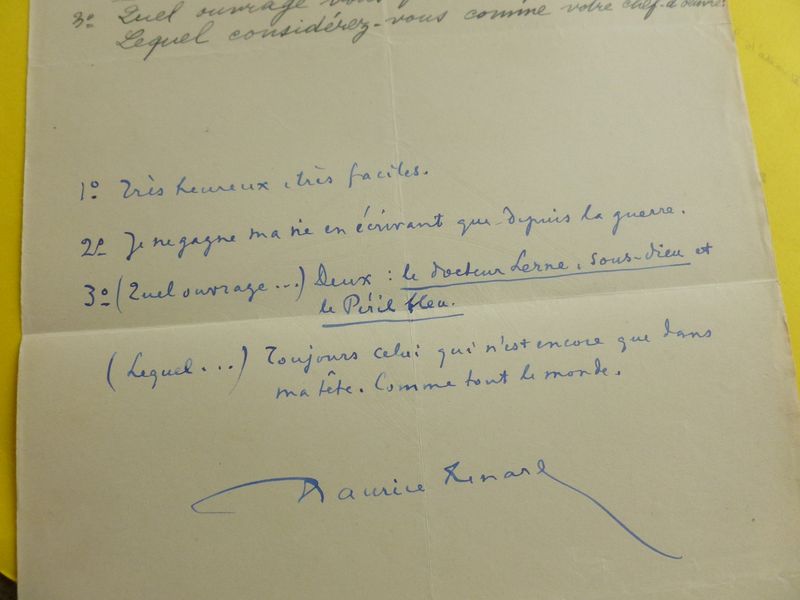 3º Quel ouvrage vous
Lequel considérez-vous comme votre chef-d'œuvre?
1º Très heureux, très faciles.
2º Je ne gagne ma vie en écrivant que depuis la guerre.
3º (Quel ouvrage...) Deux : le docteur Lerne, sous-dieu et
le Péril bleu.
(Lequel...) Toujours celui qui n'est encore que dans
ma tête. Comme tout le monde.
Maurice Renard